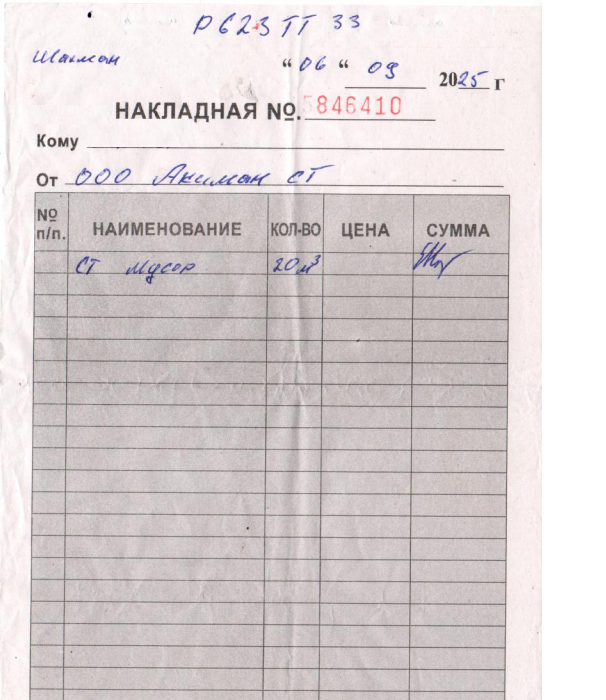 Р623ТТ 33
Шакман
“ 06 “ 09 2025 г
НАКЛАДНАЯ №. 5846410
Кому
От ООО Акиман СТ
№ п/п. НАИМЕНОВАНИЕ КОЛ-ВО ЦЕНА СУММА
СТ мусор 20 м³